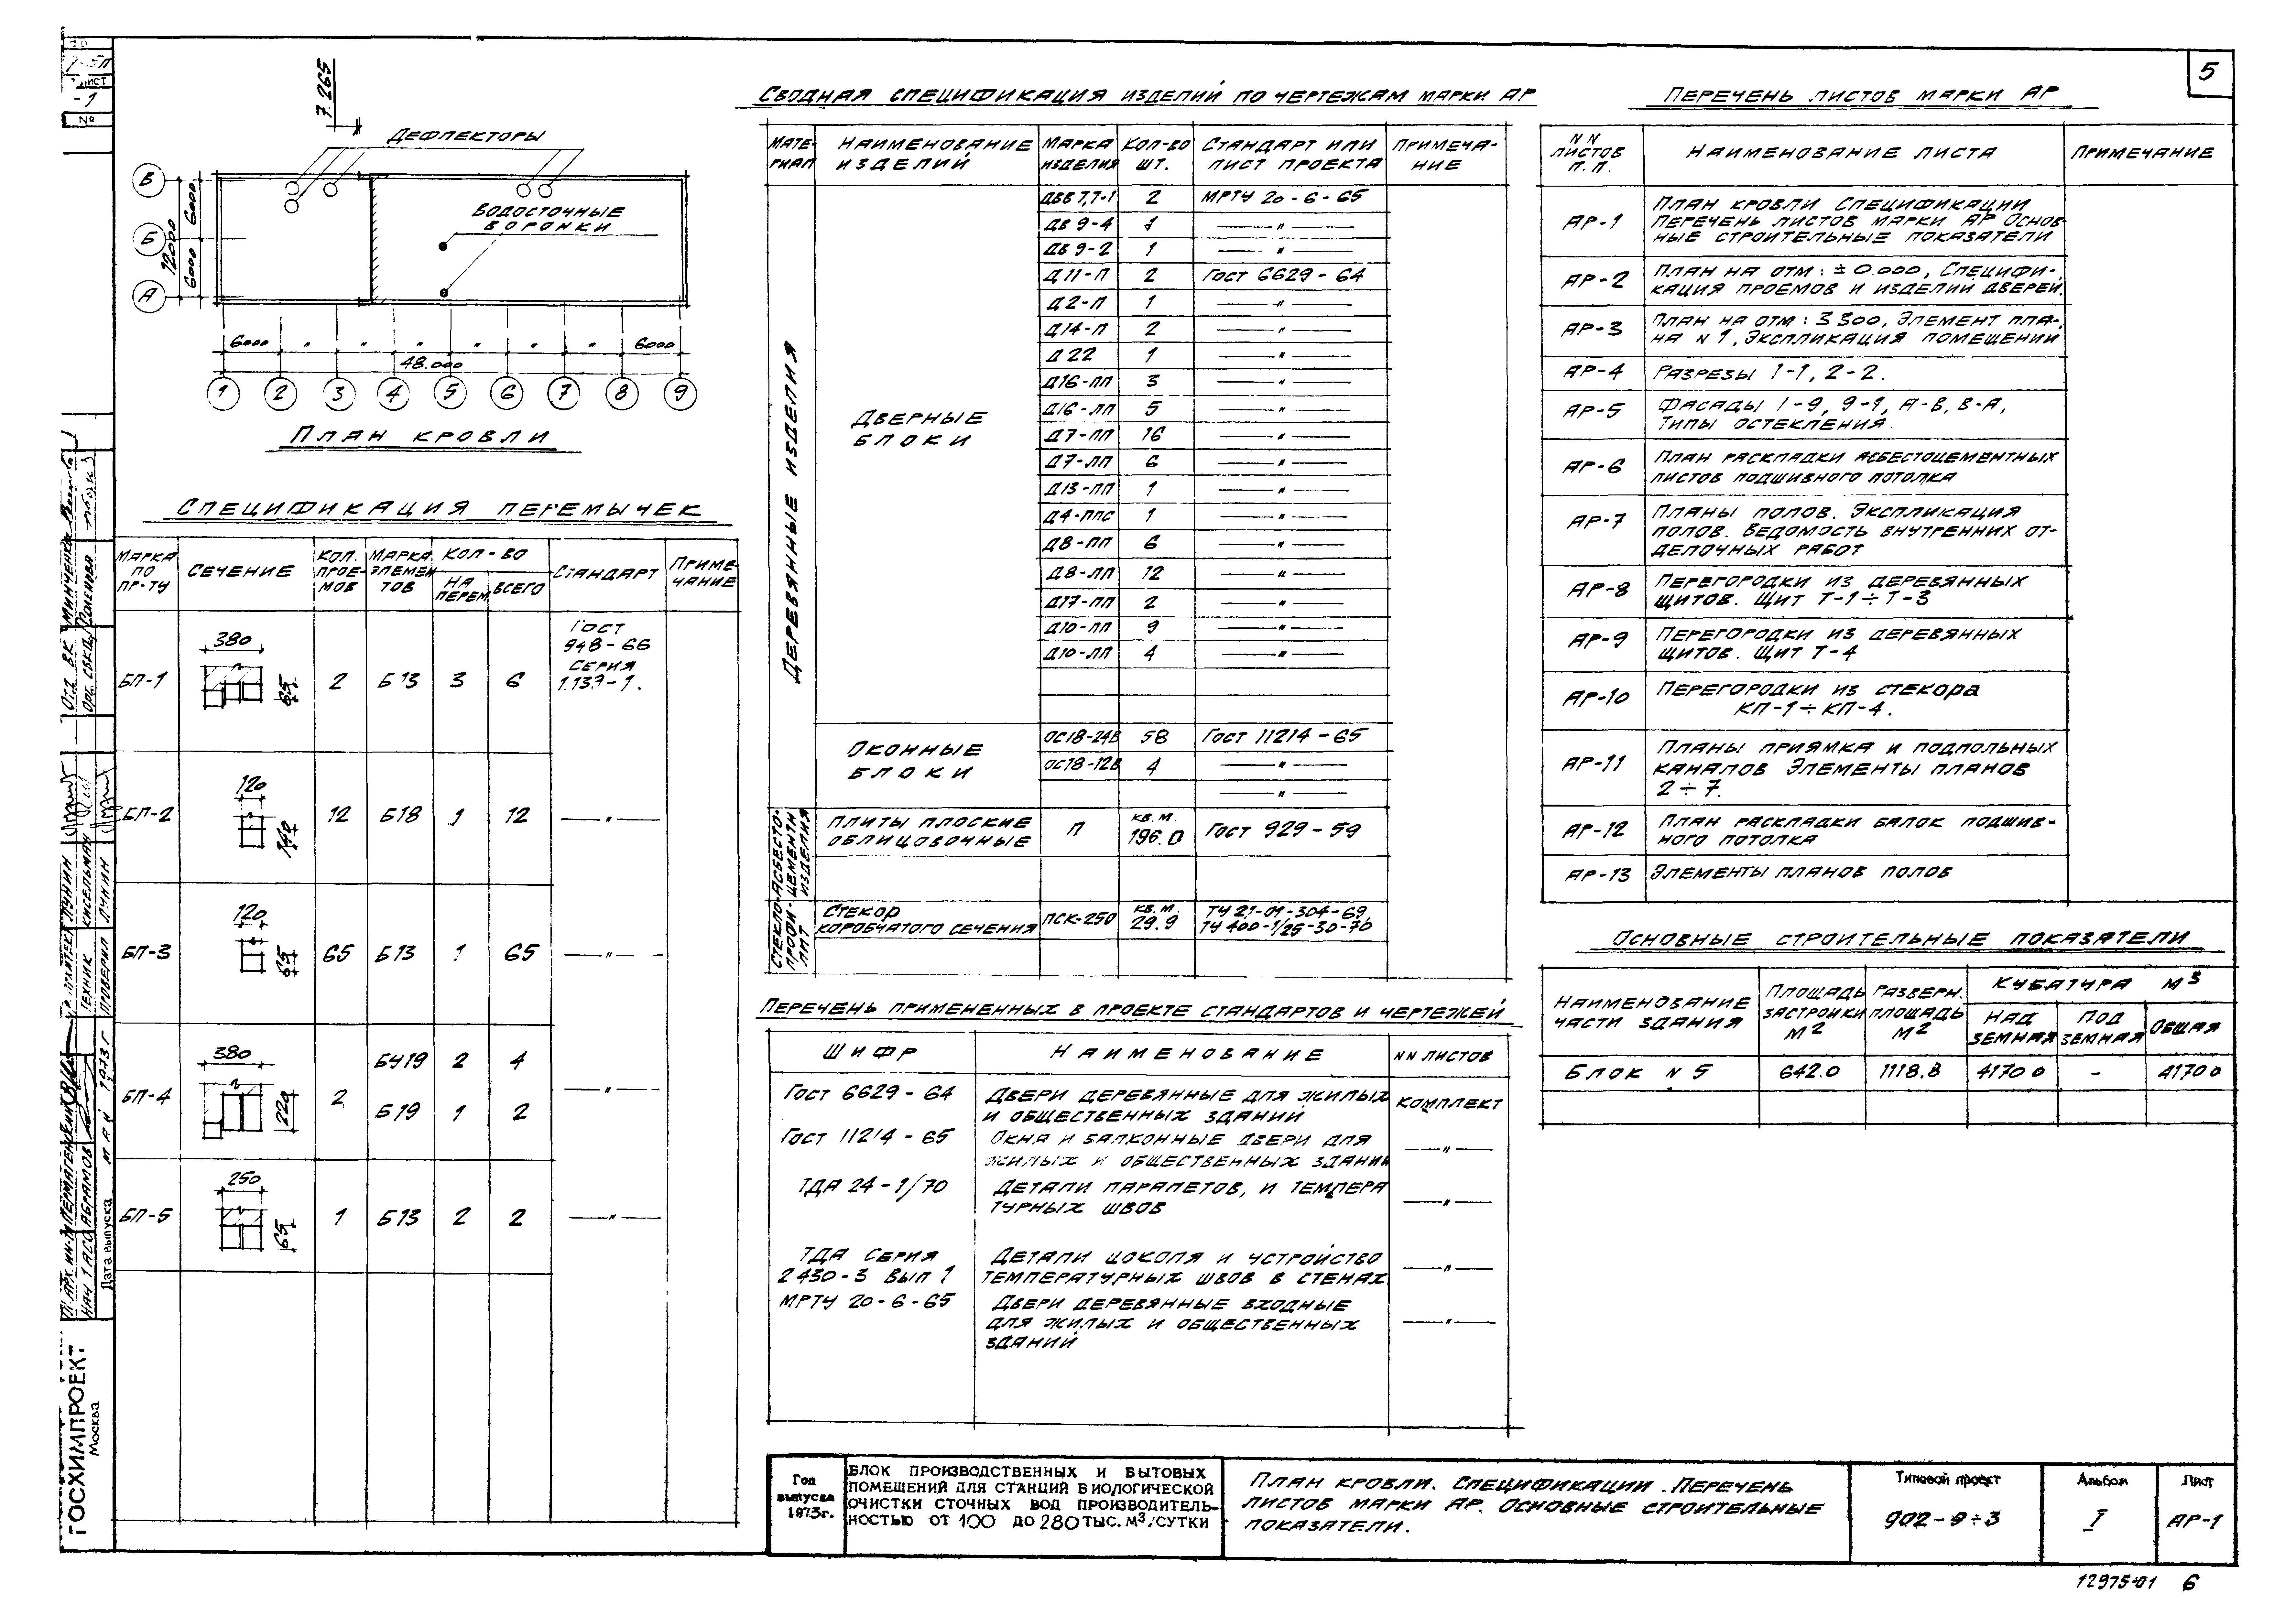 5
7.265
Дефлекторы
Водосточные
воронки
В
Б
А
6000
6000
12000
6000 " " " " " " 6000
48.000
1 2 3 4 5 6 7 8 9
План кровли
Спецификация перемычек
Марка по пр-ту | Сечение | Кол. прое-мов | Марка элемен тов | Кол-во | Стандарт | Приме-чание
на перем. | всего
БП-1 | 380 65 | 2 | Б13 | 3 | 6 | Гост 948-66 Серия 1.139-1.
БП-2 | 120 140 | 12 | Б18 | 1 | 12 | — " —
БП-3 | 120 65 | 65 | Б13 | 1 | 65 | — " —
БП-4 | 380 220 | 2 | БУ19 | 2 | 4 | — " —
Б19 | 1 | 2
БП-5 | 250 65 | 1 | Б13 | 2 | 2 | — " —
Сводная спецификация изделий по чертежам марки АР
Мате-риал | Наименование изделий | Марка изделия | Кол-во шт. | Стандарт или лист проекта | Примеча-ние
Деревянные изделия
Дверные
блоки
ДВВ 7,7-1 | 2 | МРТУ 20-6-65
ДВ 9-4 | 1 | — " —
ДВ 9-2 | 1 | — " —
Д11-П | 2 | Гост 6629-64
Д2-П | 1 | — " —
Д14-П | 2 | — " —
Д22 | 1 | — " —
Д16-ПП | 3 | — " —
Д16-ЛП | 5 | — " —
Д7-ПП | 16 | — " —
Д7-ЛП | 6 | — " —
Д13-ПП | 1 | — " —
Д4-ППС | 1 | — " —
Д8-ПП | 6 | — " —
Д8-ЛП | 12 | — " —
Д17-ПП | 2 | — " —
Д10-ПП | 9 | — " —
Д10-ЛП | 4 | — " —
Оконные
блоки
ОС18-24В | 58 | Гост 11214-65
ОС18-12В | 4 | — " —
— " —
Асбесто-цементн изделия
Плиты плоские облицовочные | П | кв.м. 196.0 | Гост 929-59
Стекло-профи-лит
Стекор коробчатого сечения | ПСК-250 | кв.м. 29.9 | ТУ 21-01-304-69 ТУ 400-1/25-30-70
Перечень примененных в проекте стандартов и чертежей
Шифр | Наименование | NN листов
Гост 6629-64 | Двери деревянные для жилых и общественных зданий | комплект
Гост 11214-65 | Окна и балконные двери для жилых и общественных здании | — " —
ТДА 24-1/70 | Детали парапетов, и темпера турных швов | — " —
ТДА Серия 2 430-3 Вып 1 | Детали цоколя и устройство температурных швов в стенах | — " —
МРТУ 20-6-65 | Двери деревянные входные для жилых и общественных зданий | — " —
Перечень листов марки АР
NN листов п.п. | Наименование листа | Примечание
АР-1 | План кровли Спецификации Перечень листов марки АР Основ ные строительные показатели
АР-2 | План на отм: ±0.000, Специфи-кация проемов и изделии дверей.
АР-3 | План на отм: 3 300, Элемент пла-на N 1, Экспликация помещении
АР-4 | Разрезы 1-1, 2-2.
АР-5 | Фасады 1-9, 9-1, А-В, В-А, Типы остекления.
АР-6 | План раскладки асбестоцементных листов подшивного потолка
АР-7 | Планы полов. Экспликация полов. Ведомость внутренних от-делочных работ
АР-8 | Перегородки из деревянных щитов. Щит Т-1÷Т-3
АР-9 | Перегородки из деревянных щитов. Щит Т-4
АР-10 | Перегородки из стекора КП-1÷КП-4.
АР-11 | Планы приямка и подпольных каналов Элементы планов 2÷7.
АР-12 | План раскладки балок подшив-ного потолка
АР-13 | Элементы планов полов
Основные строительные показатели
Наименование части здания | Площадь застройки м2 | Разверн. площадь м2 | Кубатура м3
над земная | под земная | общая
Блок N 5 | 642.0 | 1118.8 | 4170 0 | - | 4170 0
Год выпуска 1973г.
БЛОК ПРОИЗВОДСТВЕННЫХ И БЫТОВЫХ
ПОМЕЩЕНИЙ ДЛЯ СТАНЦИЙ БИОЛОГИЧЕСКОЙ
ОЧИСТКИ СТОЧНЫХ ВОД ПРОИЗВОДИТЕЛЬ-
НОСТЬЮ ОТ 100 ДО 280 ТЫС. М3/СУТКИ
План кровли. Спецификации. Перечень
листов марки АР. Основные строительные
показатели.
Типовой проект 902-9÷3
Альбом I
Лист АР-1
12975-01 6
ГОСХИМПРОЕКТ
Москва
Дата выпуска май 1973 г
Нач 1 АСО Абрамов
Техник Кисельман
Проверил Лунин